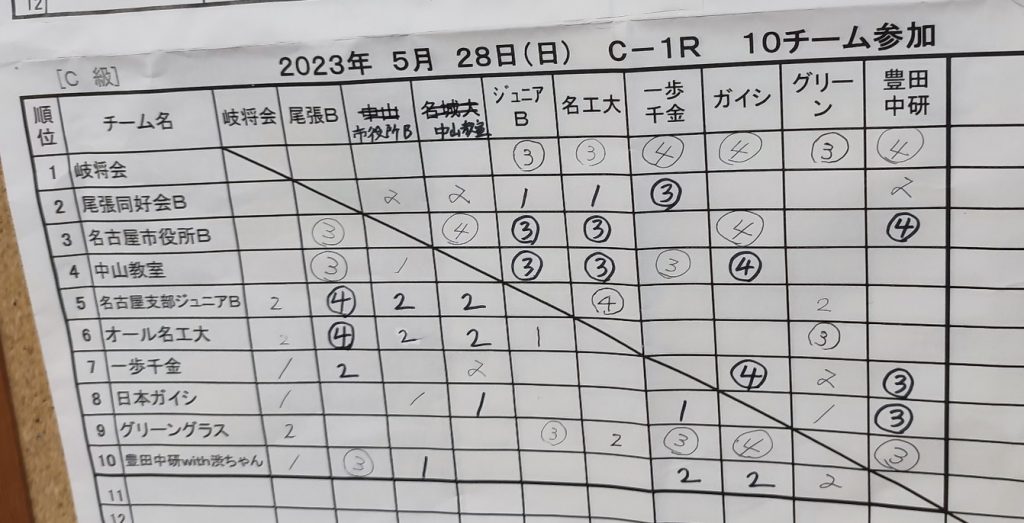 12
[C 級] 2023年 5月 28日(日) C-1R 10チーム参加
順位 チーム名 岐将会 尾張B 中山 市役所B 名城大 中山教室 ジュニアB 名工大 一歩千金 ガイシ グリーン 豊田中研
1 岐将会 ③ ③ ④ ④ ③ ④
2 尾張同好会B 2 2 1 1 ③ 2
3 名古屋市役所B ③ ④ ③ ③ ④ ④
4 中山教室 ③ 1 ③ ③ ③ ④
5 名古屋支部ジュニアB 2 ④ 2 2 ④ 2
6 オール名工大 2 ④ 2 2 1 ③
7 一歩千金 1 2 2 ④ 2 ③
8 日本ガイシ 1 1 1 1 1 ③
9 グリーングラス 2 ③ 2 ③ ④ ③
10 豊田中研with渋ちゃん 1 ③ 1 2 2 2
11
12